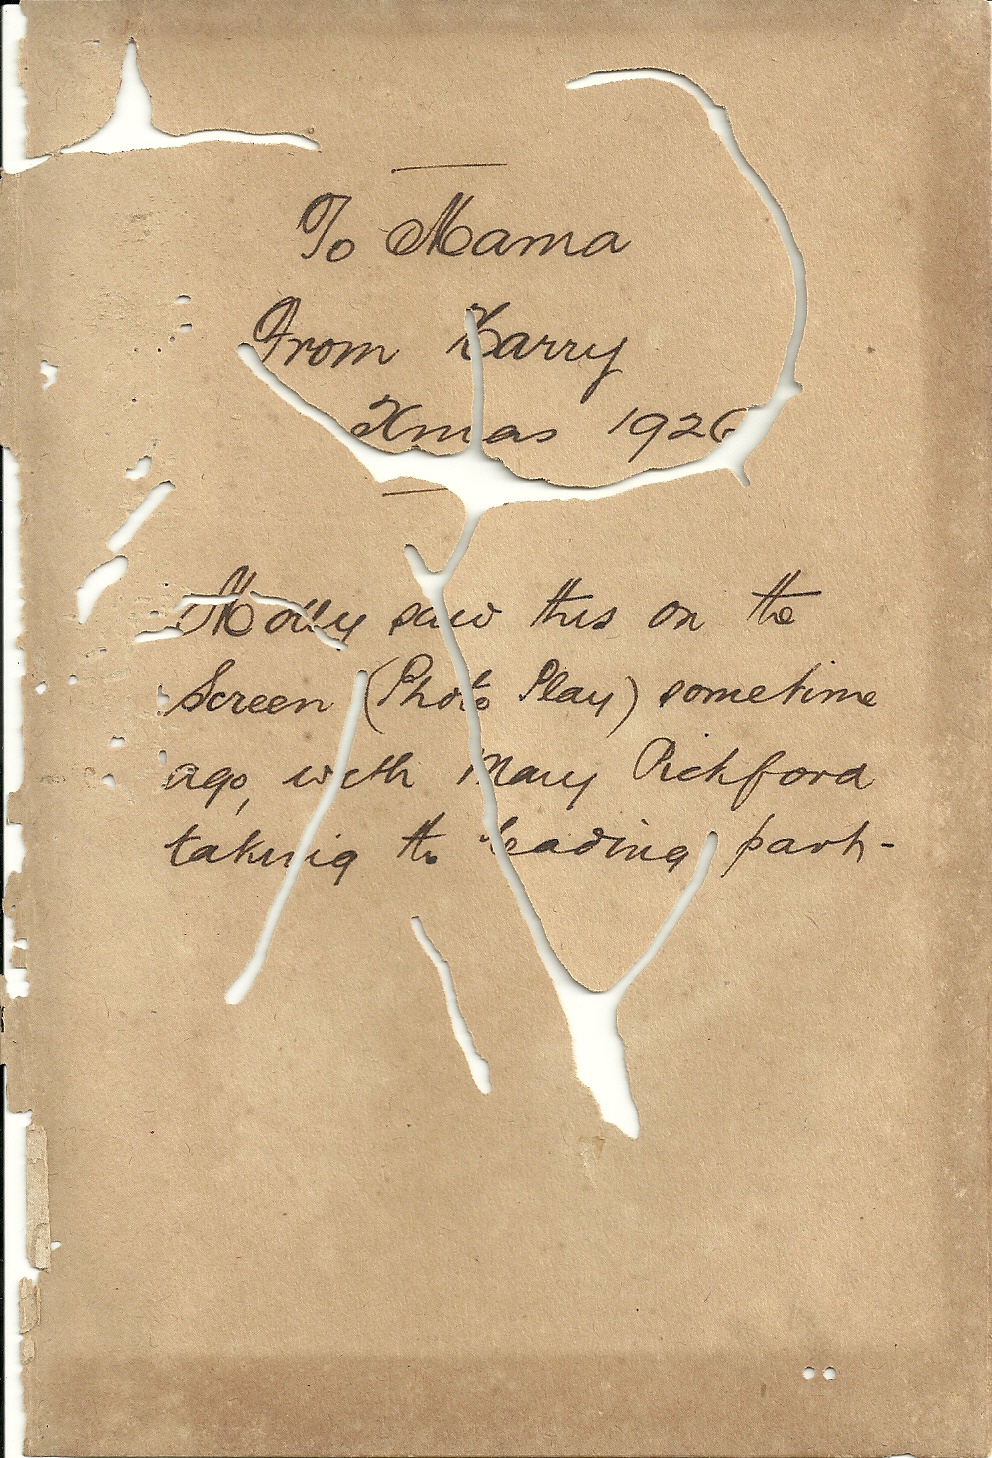 To Mama
From Harry
Xmas 1926
Molly saw this on the
Screen (Photo Play) sometime
ago, with Mary Pickford
taking the leading part-